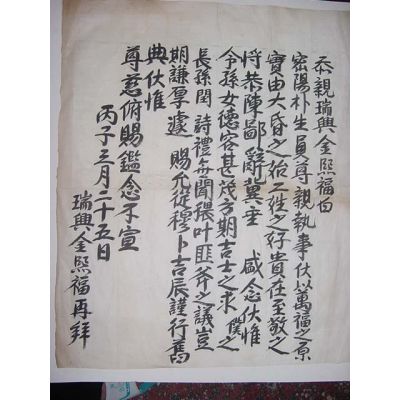 忝親瑞興金熙福白
密陽朴生員尊親執事伏以萬福之原
實由大昏之始二姓之好貴在至敬之
將恭陳鄙辭冀垂 盛念伏惟
令孫女德容甚茂方期吉士之求 僕之
長孫閏 詩禮每聞猥叶匪斧之議豈
期謙厚遽 賜允從穆卜吉辰謹行舊
典伏惟
尊慈俯賜鑑念不宣
丙子三月二十五日
瑞興金熙福再拜